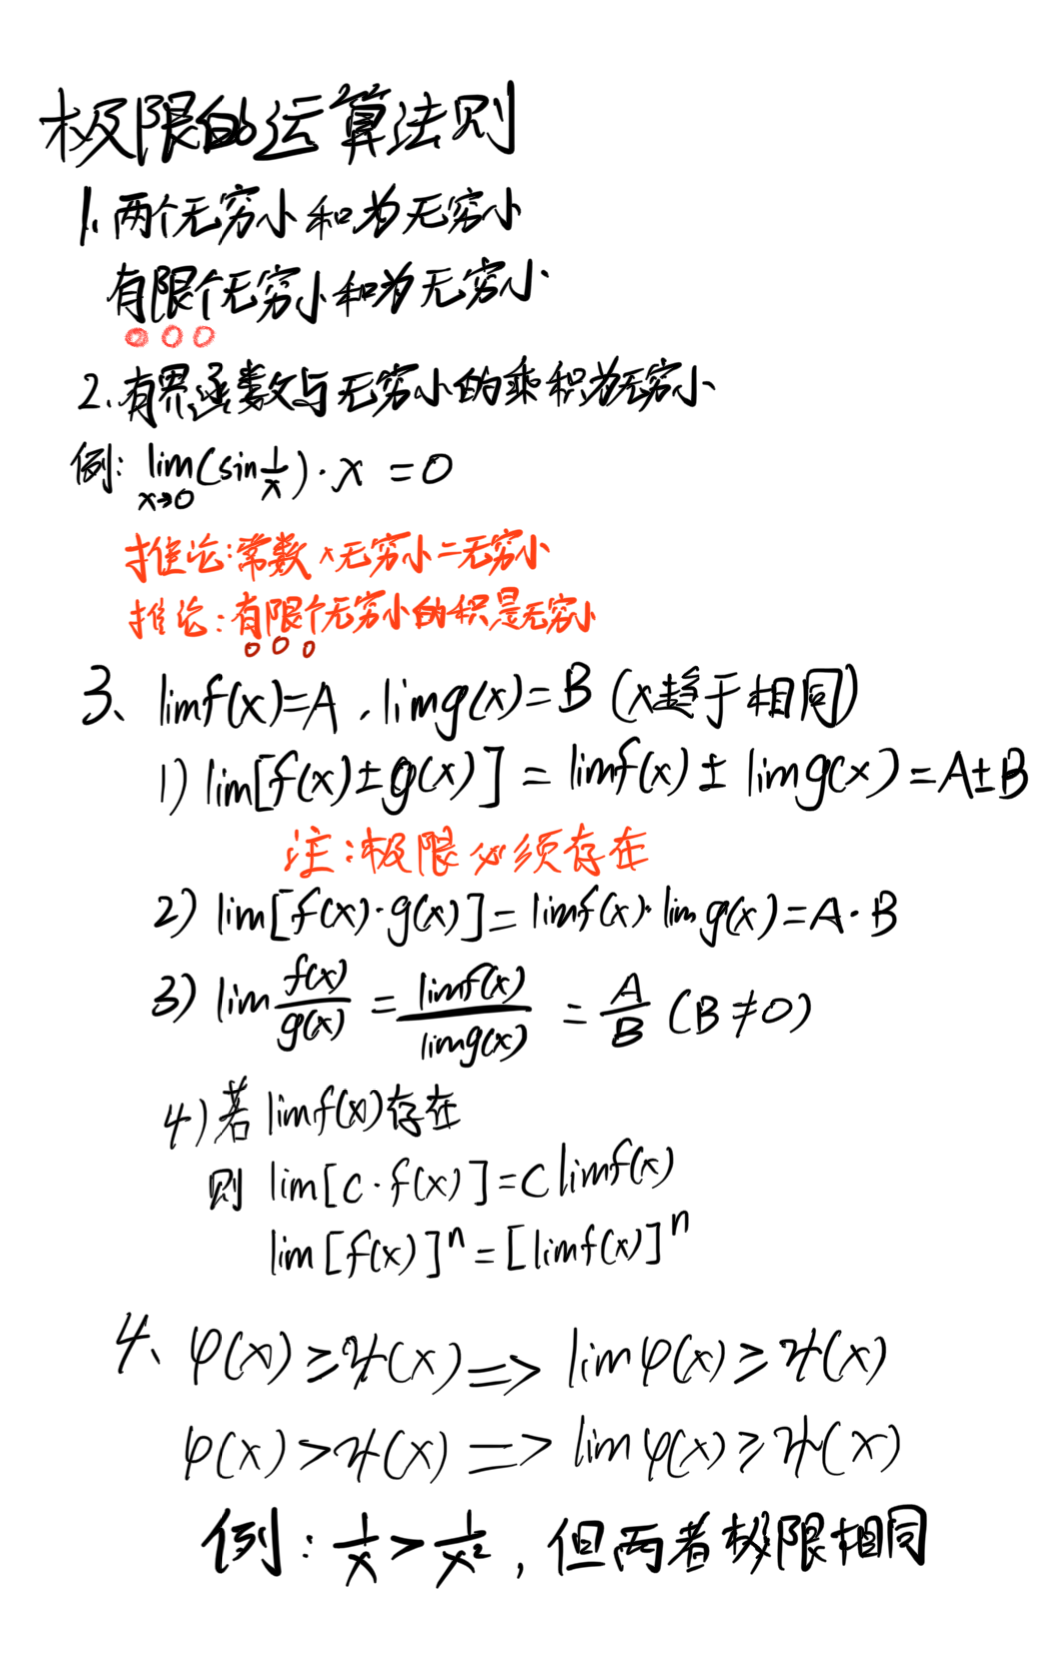 极限的运算法则
1、两个无穷小和为无穷小
有限个无穷小和为无穷小
2、有界函数与无穷小的乘积为无穷小
例: lim(sin 1/x)·x = 0
x→0
推论:常数×无穷小=无穷小
推论:有限个无穷小的积是无穷小
3、limf(x)=A，limg(x)=B (x趋于相同)
1) lim[f(x)±g(x)] = limf(x) ± limg(x) = A±B
注:极限必须存在
2) lim[f(x)·g(x)] = limf(x)·limg(x) = A·B
3) lim f(x)/g(x) = limf(x)/limg(x) = A/B (B≠0)
4) 若 limf(x)存在
则 lim[c·f(x)] = c limf(x)
lim[f(x)]ⁿ = [limf(x)]ⁿ
4、φ(x)≥ψ(x) => limφ(x)≥ψ(x)
φ(x)>ψ(x) => limφ(x)≥ψ(x)
例: 1/x > 1/x², 但两者极限相同